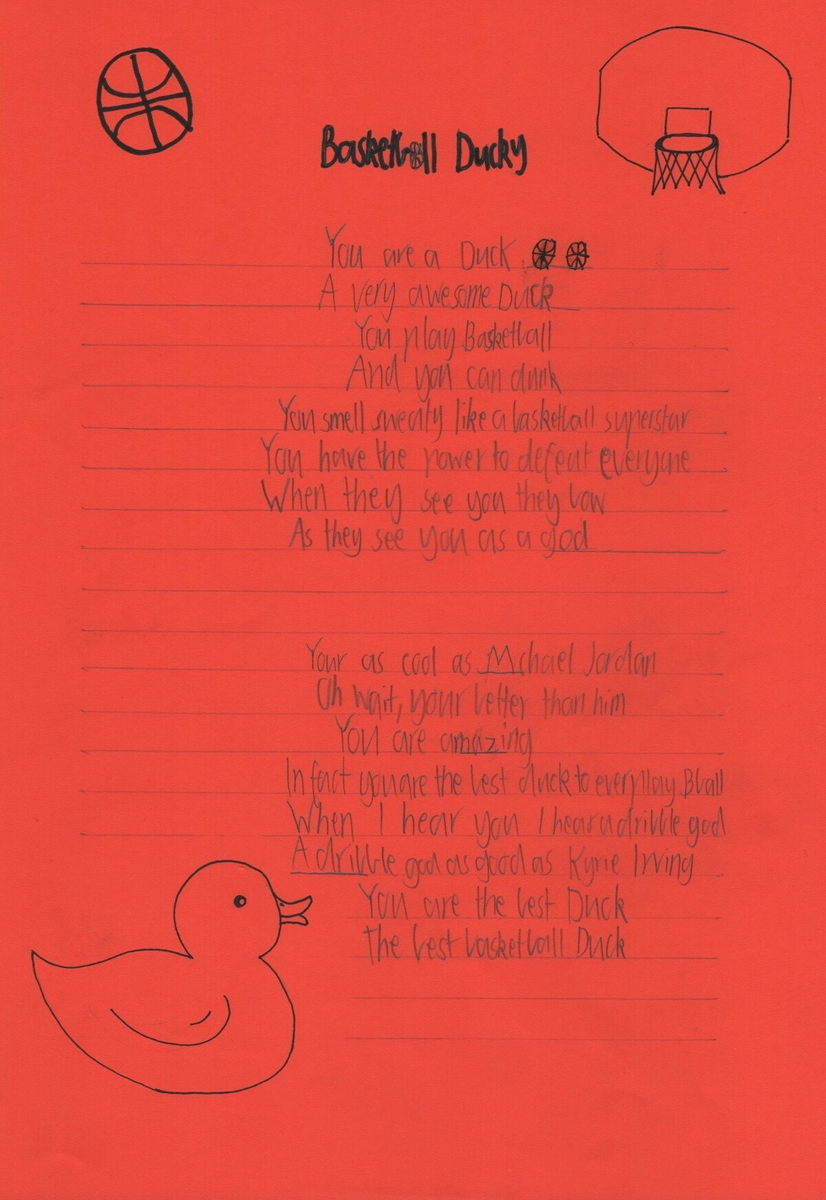 Basketball Ducky
You are a Duck
A very awesome Duck
You play Basketball
And you can dunk
You smell sweaty like a basketball superstar
You have the power to defeat everyone
When they see you they bow
As they see you as a god
Your as cool as Michael Jordan
Oh wait, your better than him
You are amazing
In fact you are the best duck to ever play Bball
When I hear you I hear a dribble god
A dribble god as good as Kyrie Irving
You are the best Duck
The best basketball Duck